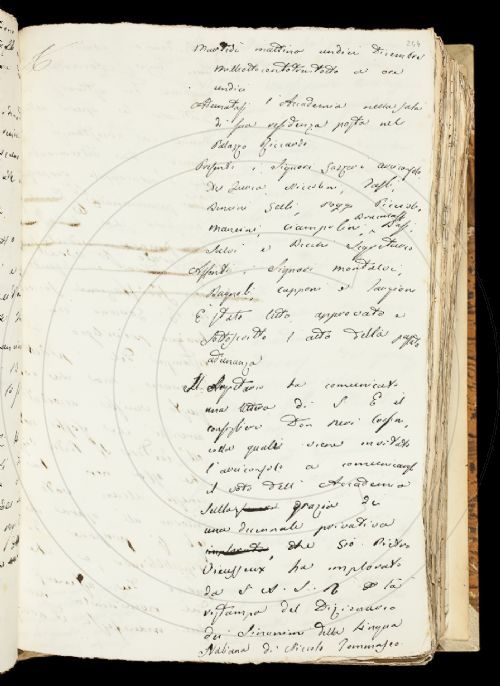 264
Martedì mattina undici Dicembre
milleottocentotrentotto a ore
undici
Adunatasi l'Accademia nella sala
di sua residenza posta nel
Palazzo Riccardi
Presenti i Signori Gazzeri arciconsolo
Del Furia Niccolini, Nesti,
Bencini Gelli, Poggi Picciolo,
Becchi Segretario
Assenti i Signori Montalvi,
Bagnoli Capponi e
È stato letto approvato e
sottoscritto l'atto della passata
adunanza
Il Segretario ha comunicato
una lettera di S. E. il
consigliere Don Neri Corsini,
colla quale viene invitato
l'arciconsolo a comunicargli
il voto dell'Accademia
sulla grazia di
una decennale privativa
che Gio. Pietro
Vieusseux ha implorato
da S. A. I. R. la
ristampa del Dizionario
dei Sinonimi della Lingua
Italiana di Niccolò Tommaseo